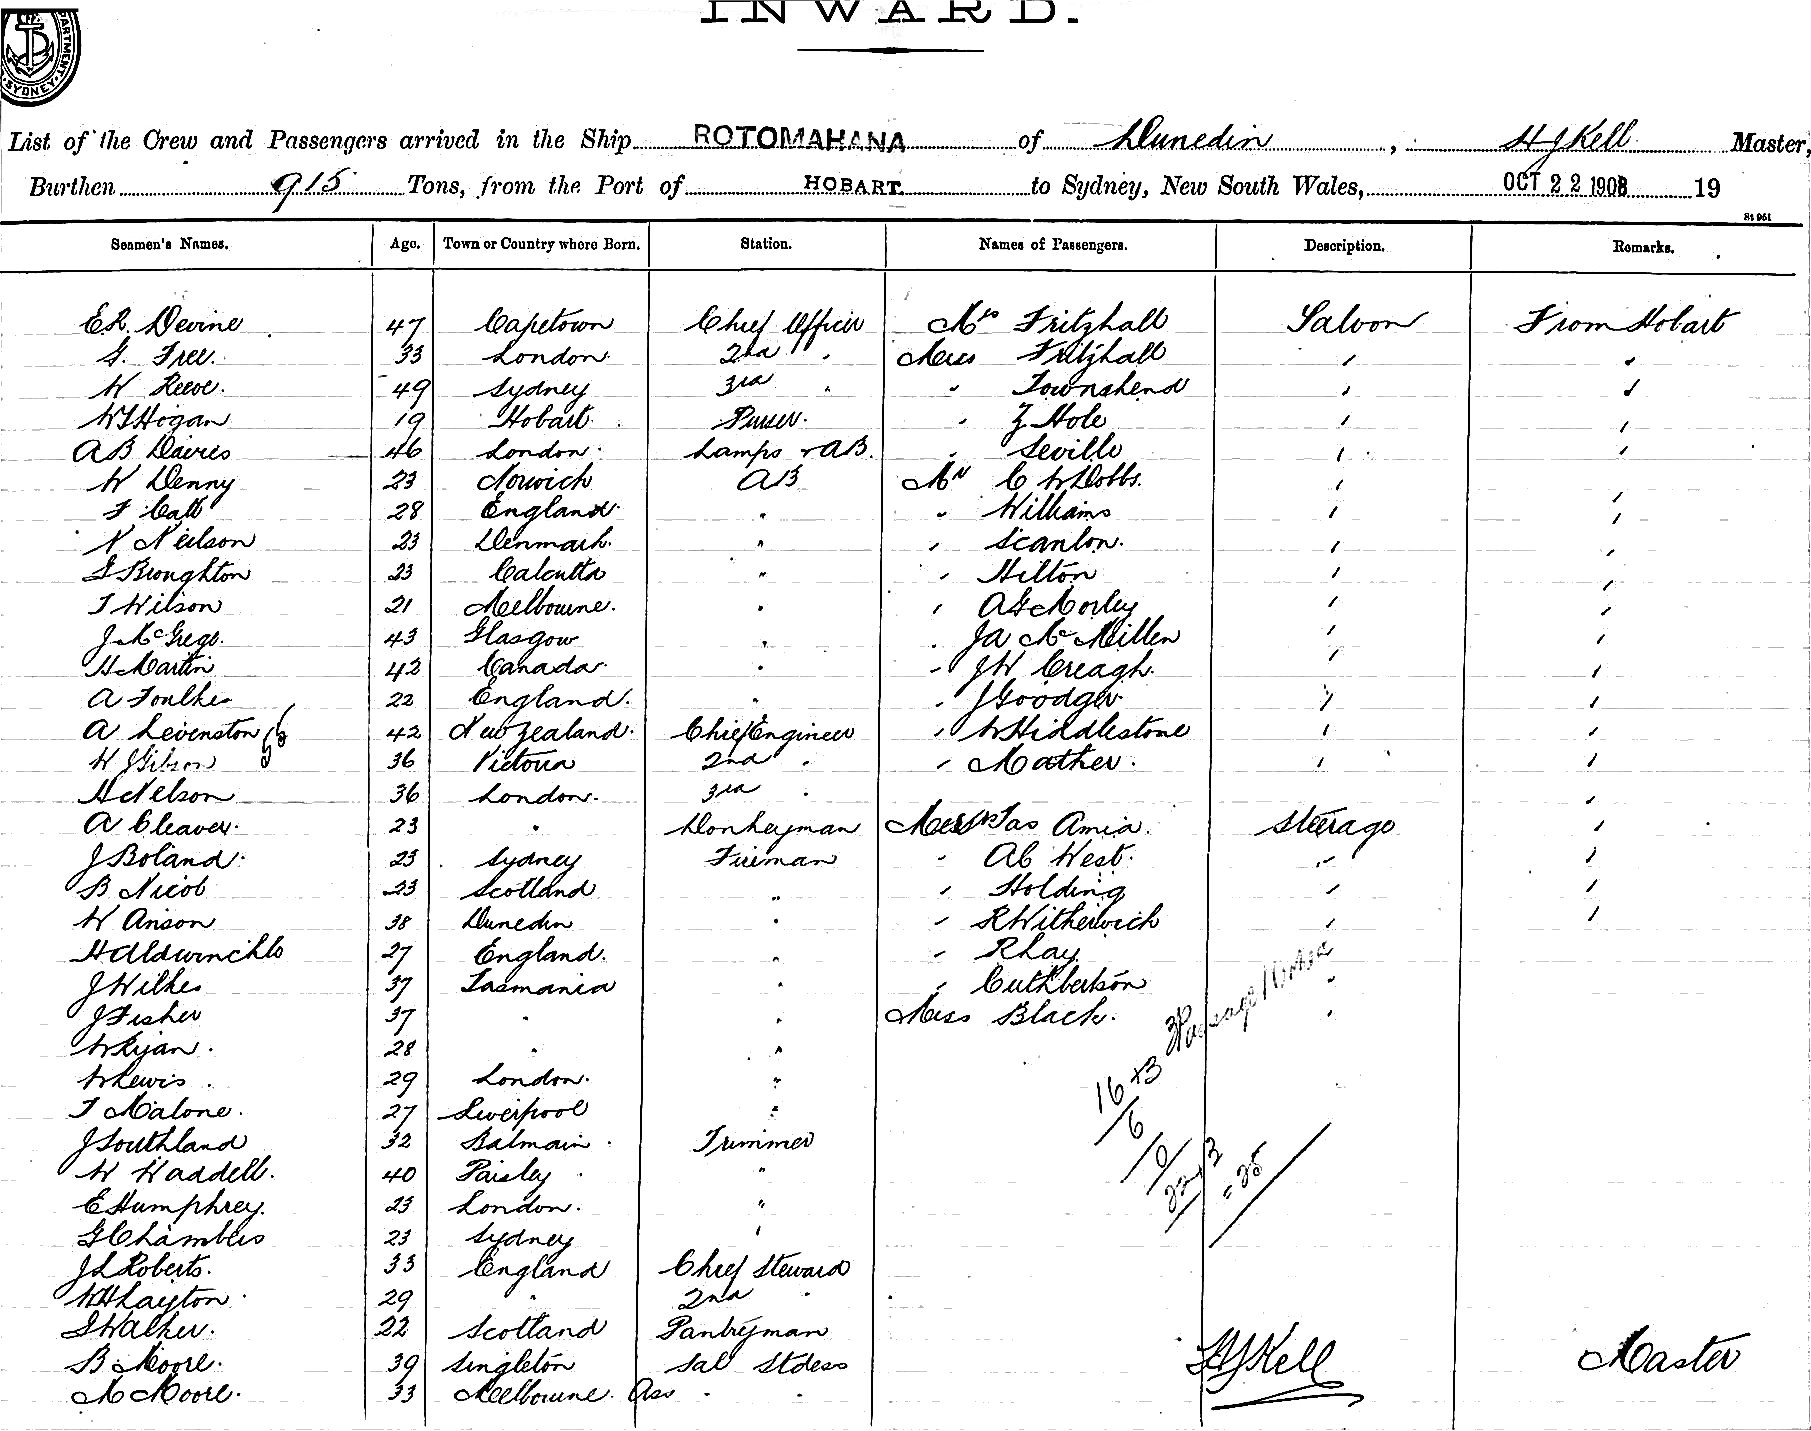 INWARD.
DEPARTMENT. SYDNEY
List of the Crew and Passengers arrived in the Ship ROTOMAHANA of Dunedin, H J Kell Master,
Burthen 915 Tons, from the Port of HOBART to Sydney, New South Wales, OCT 22 1908 19
St 961
Seamen's Names. Age. Town or Country where Born. Station. Names of Passengers. Description. Remarks.
E R. Devine 47 Capetown Chief Officer Mrs Fritzhall Saloon From Hobart
G. Free. 33 London. 2nd " Miss Fritzhall " "
W Reeve. 49 Sydney 3rd " " Townshend " "
W J Hogan 19 Hobart. Purser. " Hole " "
A B Davies 46 London. Lamps & AB. " Seville " "
W Denny 23 Norwich AB Mr C W Dobbs. "
F Catt 28 England. " " Williams " "
N Neilson 23 Denmark. " " Scanlon. " "
G Broughton 23 Calcutta " " Hilton " "
T Wilson 21 Melbourne. " " A G Morley " "
J McGrego. 43 Glasgow " " J A McMillen " "
H Martin 42 Canada " " J W Creagh. " "
A Foulkes 22 England. " " J Goodger " "
A Levenston 42 New Zealand. Chief Engineer " W Hiddlestone " "
W J Gibson 36 Victoria 2nd " " Mather. " "
H Nelson 36 London. 3rd " "
A Cleaver. 23 " Donkeyman Jas Amia. Steerage "
J Boland. 23 Sydney Fireman " Ab West. " "
B Nicol 23 Scotland " " Holding " "
W Anson 38 Dunedin " " R Witherwich " "
H Aldwinchle 27 England. " " R Hay "
J Wilkes 37 Tasmania " " Cuthbertson "
J Fisher 37 " " Miss Black. "
W Ryan. 28 " "
W Lewis. 29 London. "
T Malone. 27 Liverpool "
J Southland 32 Balmain. Trimmer
W Waddell. 40 Paisley "
E Humphrey. 23 London. "
G Chambers 23 Sydney "
J L Roberts. 33 England Chief Steward
W H Layton. 29 " 2nd "
S Walker. 22 Scotland Pantryman
B Moore. 39 Singleton Sal Stdess H J Kell Master
M Moore. 33 Melbourne. Ass " "
16 + 3
6
= 25